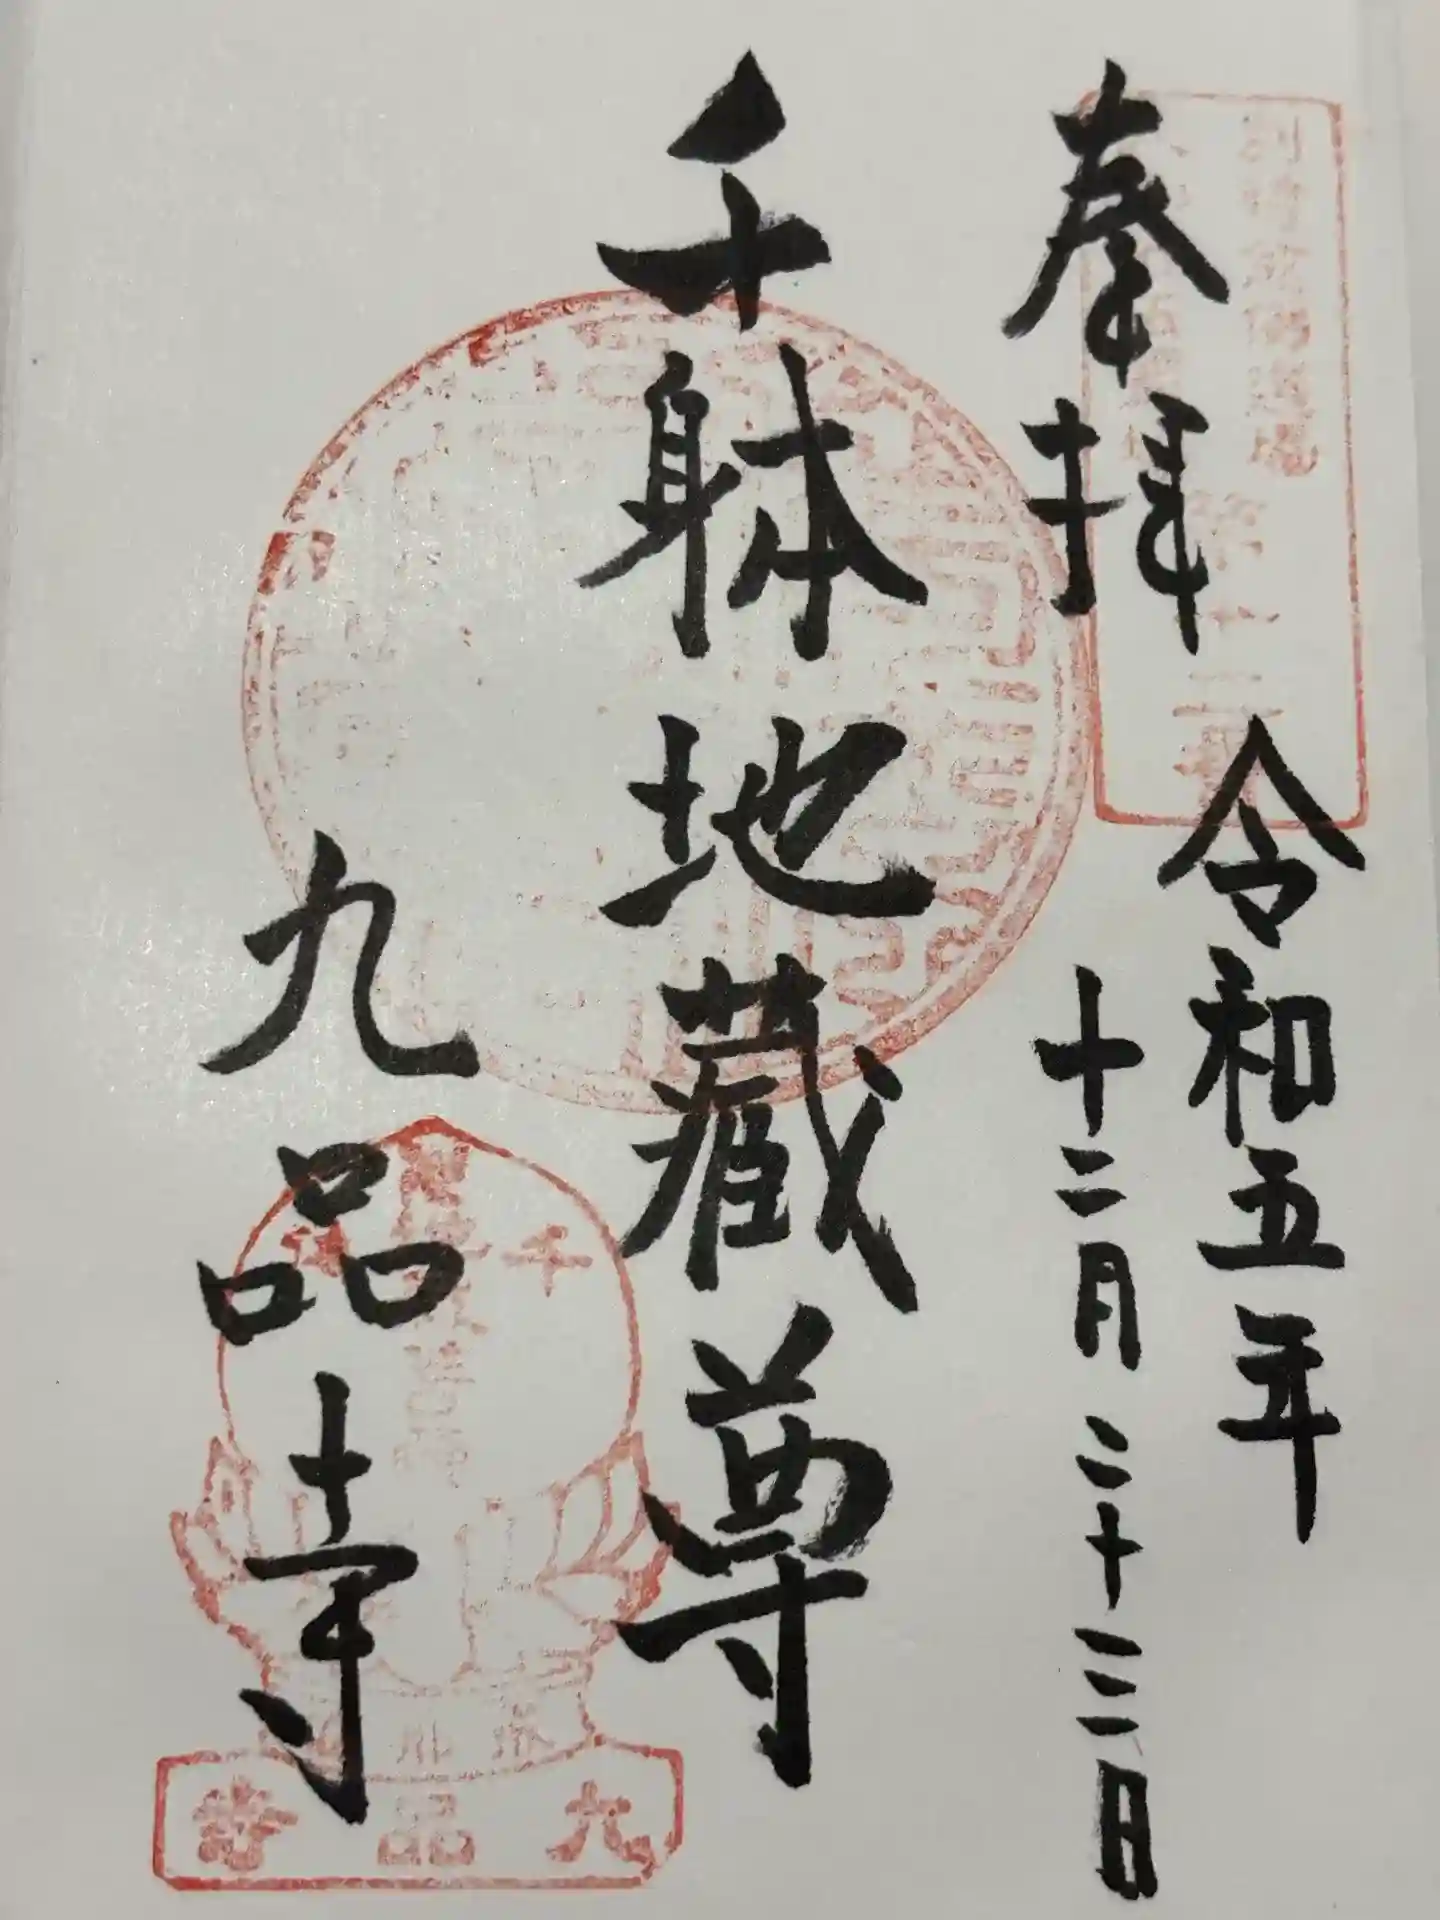 奉拝
令和五年
十二月二十三日
千躰地蔵尊
九品寺
千
九品寺